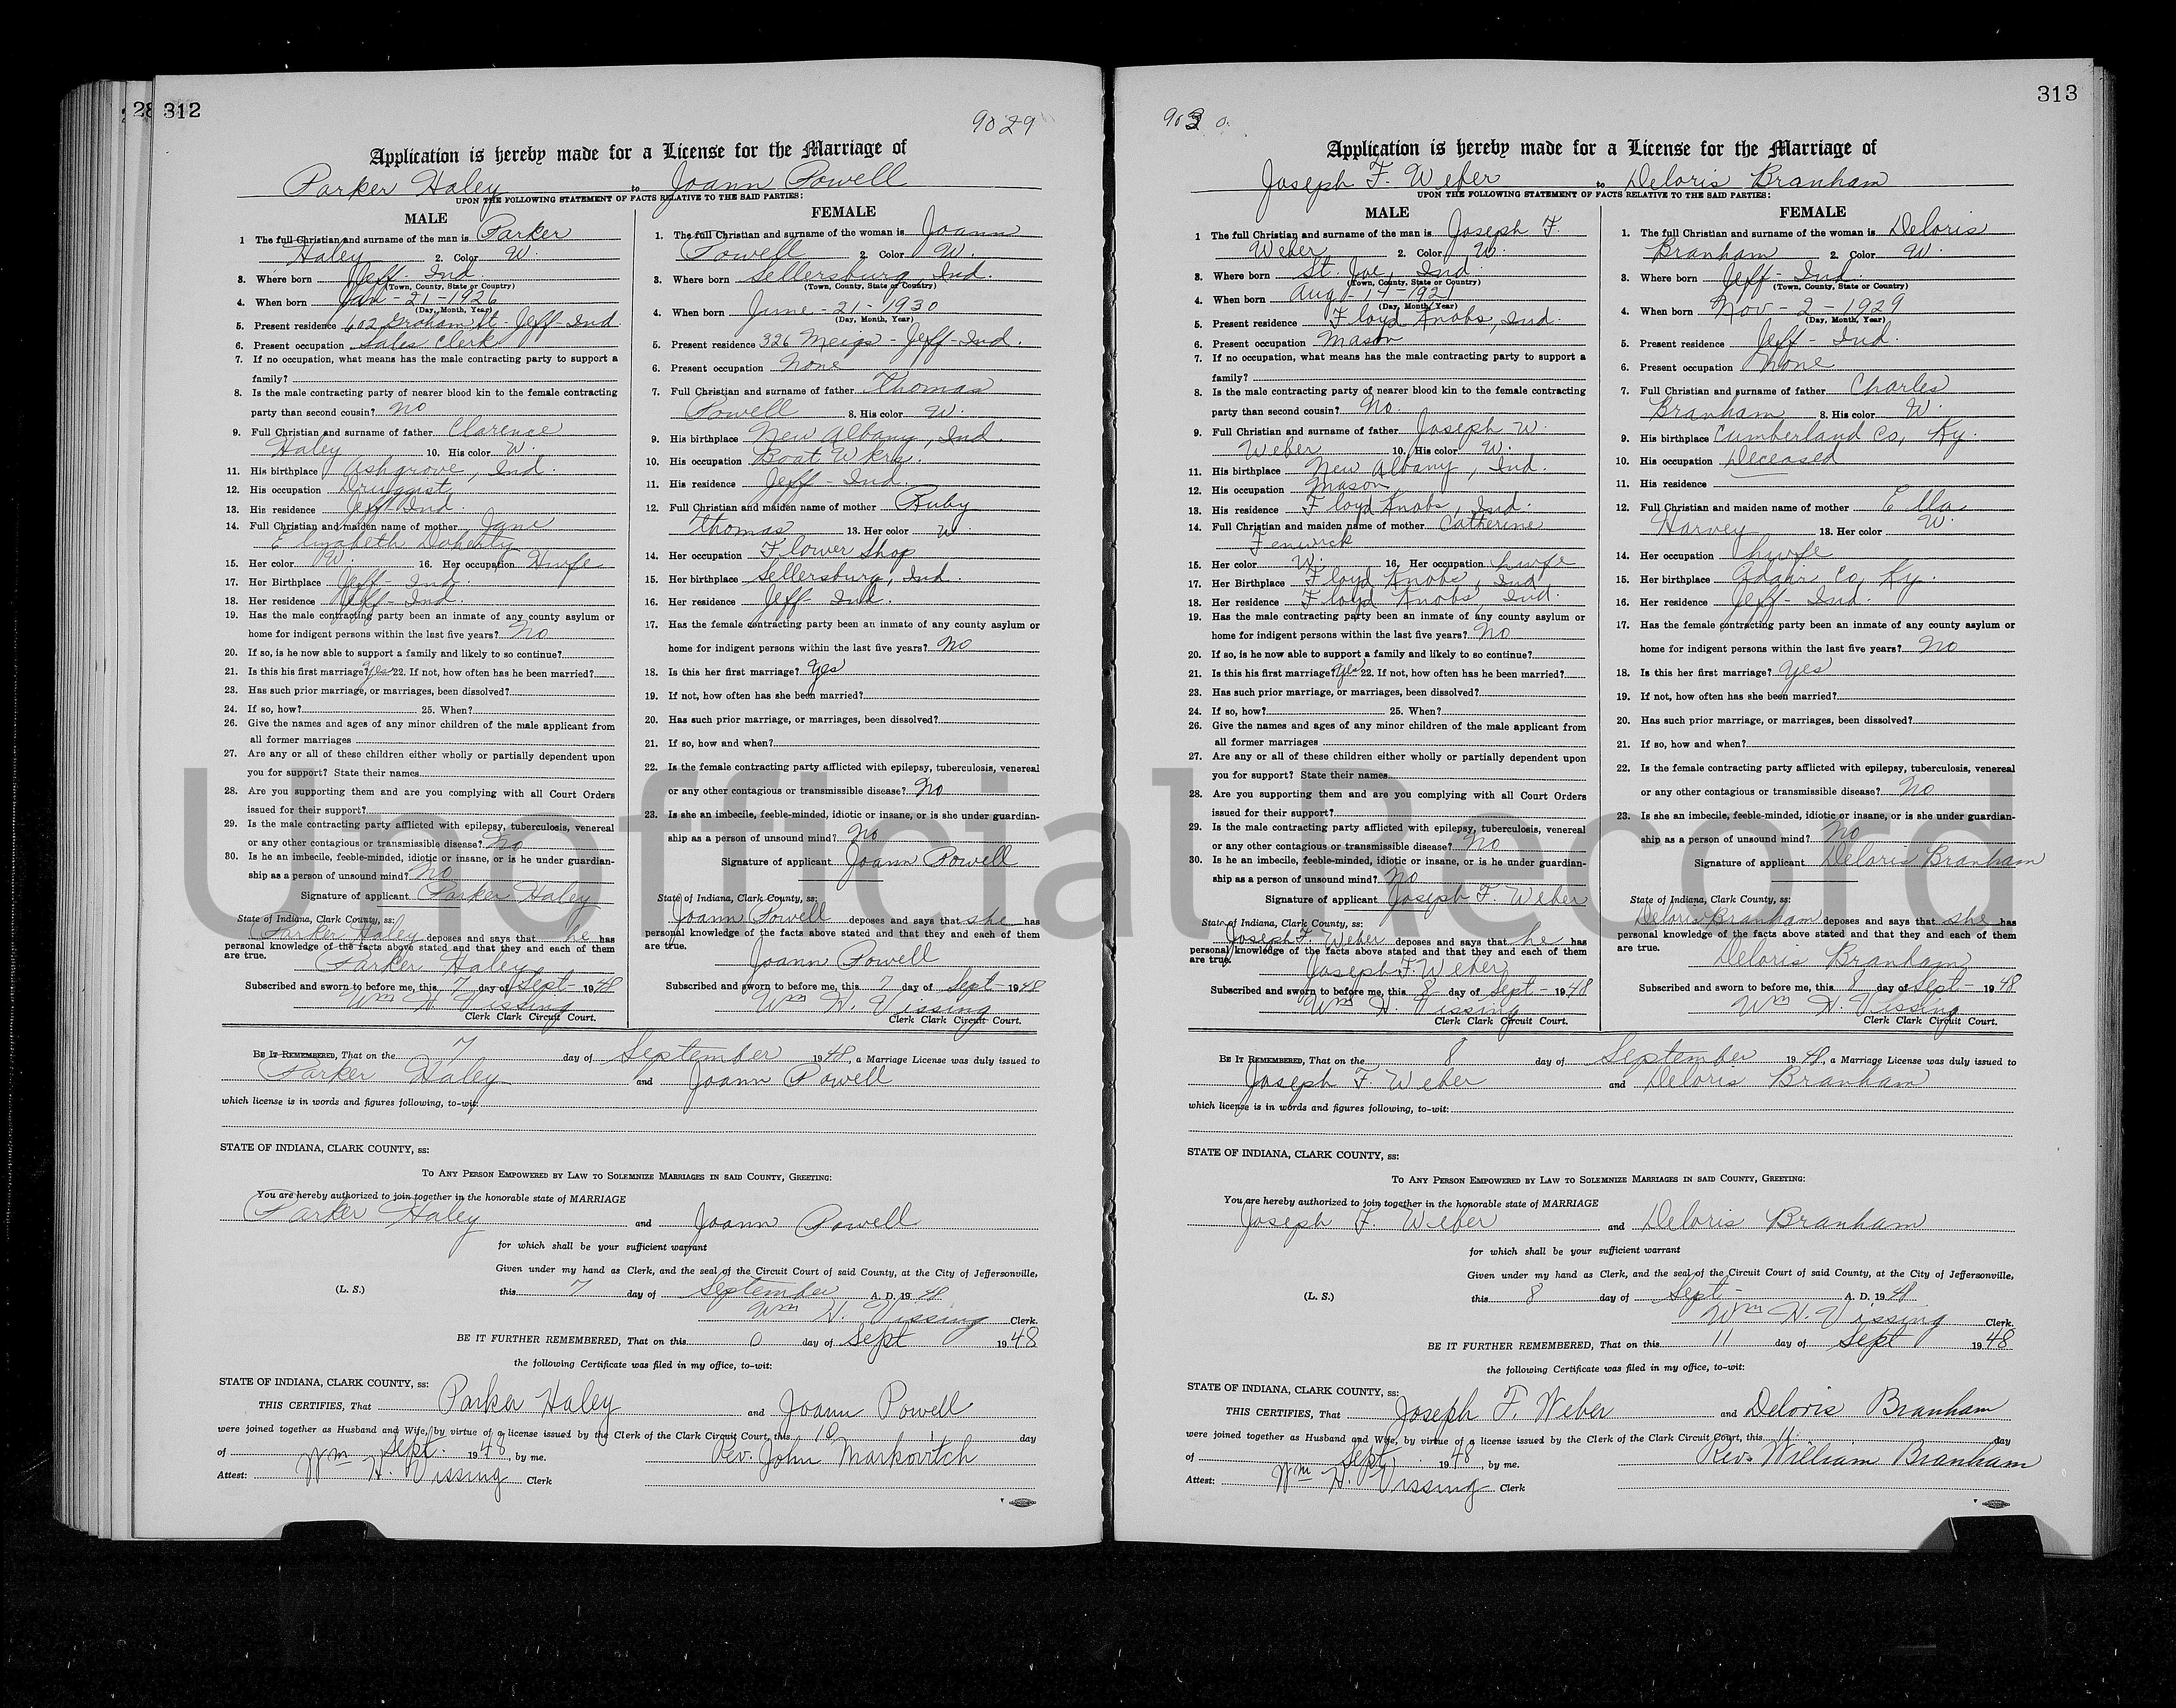 28 312
9029
Application is hereby made for a License for the Marriage of
Parker Haley to Joann Powell
UPON THE FOLLOWING STATEMENT OF FACTS RELATIVE TO THE SAID PARTIES:
MALE
1 The full Christian and surname of the man is Parker
Haley 2. Color W.
3. Where born Jeff- Ind.
(Town, County, State or Country)
4. When born Jan - 21 - 1926
(Day, Month, Year)
5. Present residence 602 Graham St - Jeff - Ind
6. Present occupation Sales Clerk
7. If no occupation, what means has the male contracting party to support a
family?
8. Is the male contracting party of nearer blood kin to the female contracting
party than second cousin? No
9. Full Christian and surname of father Clarence
Haley 10. His color W.
11. His birthplace Ashgrove, Ind.
12. His occupation Druggist
13. His residence Jeff Ind.
14. Full Christian and maiden name of mother Jane
Elizabeth Doherty
15. Her color W. 16. Her occupation Hwife
17. Her Birthplace Jeff - Ind.
18. Her residence Jeff - Ind.
19. Has the male contracting party been an inmate of any county asylum or
home for indigent persons within the last five years? No
20. If so, is he now able to support a family and likely to so continue?
21. Is this his first marriage? Yes 22. If not, how often has he been married?
23. Has such prior marriage, or marriages, been dissolved?
24. If so, how? 25. When?
26. Give the names and ages of any minor children of the male applicant from
all former marriages
27. Are any or all of these children either wholly or partially dependent upon
you for support? State their names
28. Are you supporting them and are you complying with all Court Orders
issued for their support?
29. Is the male contracting party afflicted with epilepsy, tuberculosis, venereal
or any other contagious or transmissible disease? No
30. Is he an imbecile, feeble-minded, idiotic or insane, or is he under guardian-
ship as a person of unsound mind? No
Signature of applicant Parker Haley
State of Indiana, Clark County, ss:
Parker Haley deposes and says that he has
personal knowledge of the facts above stated and that they and each of them
are true.
Parker Haley
Subscribed and sworn to before me, this 7 day of Sept - 1948
Wm H. Vissing
Clerk Clark Circuit Court.
FEMALE
1. The full Christian and surname of the woman is Joann
Powell 2. Color W.
3. Where born Sellersburg, Ind.
(Town, County, State or Country)
4. When born June - 21 - 1930
(Day, Month, Year)
5. Present residence 326 Meigs - Jeff - Ind.
6. Present occupation None
7. Full Christian and surname of father Thomas
Powell 8. His color W.
9. His birthplace New Albany, Ind.
10. His occupation Boat Wkry.
11. His residence Jeff - Ind.
12. Full Christian and maiden name of mother Ruby
Thomas 13. Her color W.
14. Her occupation Flower Shop
15. Her birthplace Sellersburg, Ind.
16. Her residence Jeff Ind.
17. Has the female contracting party been an inmate of any county asylum or
home for indigent persons within the last five years? No
18. Is this her first marriage? Yes
19. If not, how often has she been married?
20. Has such prior marriage, or marriages, been dissolved?
21. If so, how and when?
22. Is the female contracting party afflicted with epilepsy, tuberculosis, venereal
or any other contagious or transmissible disease? No
23. Is she an imbecile, feeble-minded, idiotic or insane, or is she under guardian-
ship as a person of unsound mind? No
Signature of applicant Joann Powell
State of Indiana, Clark County, ss:
Joann Powell deposes and says that she has
personal knowledge of the facts above stated and that they and each of them
are true.
Joann Powell
Subscribed and sworn to before me, this 7 day of Sept - 1948
Wm H. Vissing
Clerk Clark Circuit Court.
BE IT REMEMBERED, That on the 7 day of September 1948, a Marriage License was duly issued to
Parker Haley and Joann Powell
which license is in words and figures following, to-wit:
STATE OF INDIANA, CLARK COUNTY, ss:
TO ANY PERSON EMPOWERED BY LAW TO SOLEMNIZE MARRIAGES IN SAID COUNTY, GREETING:
You are hereby authorized to join together in the honorable state of MARRIAGE
Parker Haley and Joann Powell
for which shall be your sufficient warrant
Given under my hand as Clerk, and the seal of the Circuit Court of said County, at the City of Jeffersonville,
(L. S.) this 7 day of September A. D. 1948
Wm H. Vissing Clerk.
BE IT FURTHER REMEMBERED, That on this 0 day of Sept 1948
the following Certificate was filed in my office, to-wit:
STATE OF INDIANA, CLARK COUNTY, ss:
THIS CERTIFIES, That Parker Haley and Joann Powell
were joined together as Husband and Wife, by virtue of a license issued by the Clerk of the Clark Circuit Court, this 10 day
of Sept. 1948, by me. Rev. John Markovitch
Attest: Wm H. Vissing Clerk
313
9030.
Application is hereby made for a License for the Marriage of
Joseph F. Weber to Deloris Branham
UPON THE FOLLOWING STATEMENT OF FACTS RELATIVE TO THE SAID PARTIES:
MALE
1 The full Christian and surname of the man is Joseph F.
Weber 2. Color W.
3. Where born St. Joe, Ind.
(Town, County, State or Country)
4. When born Aug - 14 - 1921
(Day, Month, Year)
5. Present residence Floyd Knobs, Ind.
6. Present occupation Mason
7. If no occupation, what means has the male contracting party to support a
family?
8. Is the male contracting party of nearer blood kin to the female contracting
party than second cousin? No.
9. Full Christian and surname of father Joseph W.
Weber 10. His color W.
11. His birthplace New Albany, Ind.
12. His occupation Mason
13. His residence Floyd Knobs, Ind.
14. Full Christian and maiden name of mother Catherine
Fenwick
15. Her color W. 16. Her occupation hwife
17. Her Birthplace Floyd Knobs, Ind
18. Her residence Floyd Knobs, Ind.
19. Has the male contracting party been an inmate of any county asylum or
home for indigent persons within the last five years? No
20. If so, is he now able to support a family and likely to so continue?
21. Is this his first marriage? Yes 22. If not, how often has he been married?
23. Has such prior marriage, or marriages, been dissolved?
24. If so, how? 25. When?
26. Give the names and ages of any minor children of the male applicant from
all former marriages
27. Are any or all of these children either wholly or partially dependent upon
you for support? State their names
28. Are you supporting them and are you complying with all Court Orders
issued for their support?
29. Is the male contracting party afflicted with epilepsy, tuberculosis, venereal
or any other contagious or transmissible disease? No
30. Is he an imbecile, feeble-minded, idiotic or insane, or is he under guardian-
ship as a person of unsound mind? No
Signature of applicant Joseph F. Weber
State of Indiana, Clark County, ss:
Joseph F. Weber deposes and says that he has
personal knowledge of the facts above stated and that they and each of them
are true.
Joseph F. Weber
Subscribed and sworn to before me, this 8 day of Sept - 1948
Wm H. Vissing
Clerk Clark Circuit Court.
FEMALE
1. The full Christian and surname of the woman is Deloris
Branham 2. Color W.
3. Where born Jeff - Ind.
(Town, County, State or Country)
4. When born Nov - 2 - 1929
(Day, Month, Year)
5. Present residence Jeff - Ind.
6. Present occupation None
7. Full Christian and surname of father Charles
Branham 8. His color W.
9. His birthplace Cumberland Co, Ky.
10. His occupation Deceased
11. His residence
12. Full Christian and maiden name of mother Ella
Harvey 13. Her color W.
14. Her occupation hwife
15. Her birthplace Co, Ky.
16. Her residence Jeff - Ind.
17. Has the female contracting party been an inmate of any county asylum or
home for indigent persons within the last five years? No
18. Is this her first marriage? Yes
19. If not, how often has she been married?
20. Has such prior marriage, or marriages, been dissolved?
21. If so, how and when?
22. Is the female contracting party afflicted with epilepsy, tuberculosis, venereal
or any other contagious or transmissible disease? No
23. Is she an imbecile, feeble-minded, idiotic or insane, or is she under guardian-
ship as a person of unsound mind? No
Signature of applicant Deloris Branham
State of Indiana, Clark County, ss:
Deloris Branham deposes and says that she has
personal knowledge of the facts above stated and that they and each of them
are true.
Deloris Branham
Subscribed and sworn to before me, this 8 day of Sept - 1948
Wm H. Vissing
Clerk Clark Circuit Court.
BE IT REMEMBERED, That on the 8 day of September 1948, a Marriage License was duly issued to
Joseph F. Weber and Deloris Branham
which license is in words and figures following, to-wit:
STATE OF INDIANA, CLARK COUNTY, ss:
TO ANY PERSON EMPOWERED BY LAW TO SOLEMNIZE MARRIAGES IN SAID COUNTY, GREETING:
You are hereby authorized to join together in the honorable state of MARRIAGE
Joseph F. Weber and Deloris Branham
for which shall be your sufficient warrant
Given under my hand as Clerk, and the seal of the Circuit Court of said County, at the City of Jeffersonville,
(L. S.) this 8 day of Sept - A. D. 1948
Wm H. Vissing Clerk.
BE IT FURTHER REMEMBERED, That on this 11 day of Sept 1948
the following Certificate was filed in my office, to-wit:
STATE OF INDIANA, CLARK COUNTY, ss:
THIS CERTIFIES, That Joseph F. Weber and Deloris Branham
were joined together as Husband and Wife, by virtue of a license issued by the Clerk of the Clark Circuit Court, this day
of Sept 1948, by me. Rev. William Branham
Attest: Wm H. Vissing Clerk
Unofficial Record